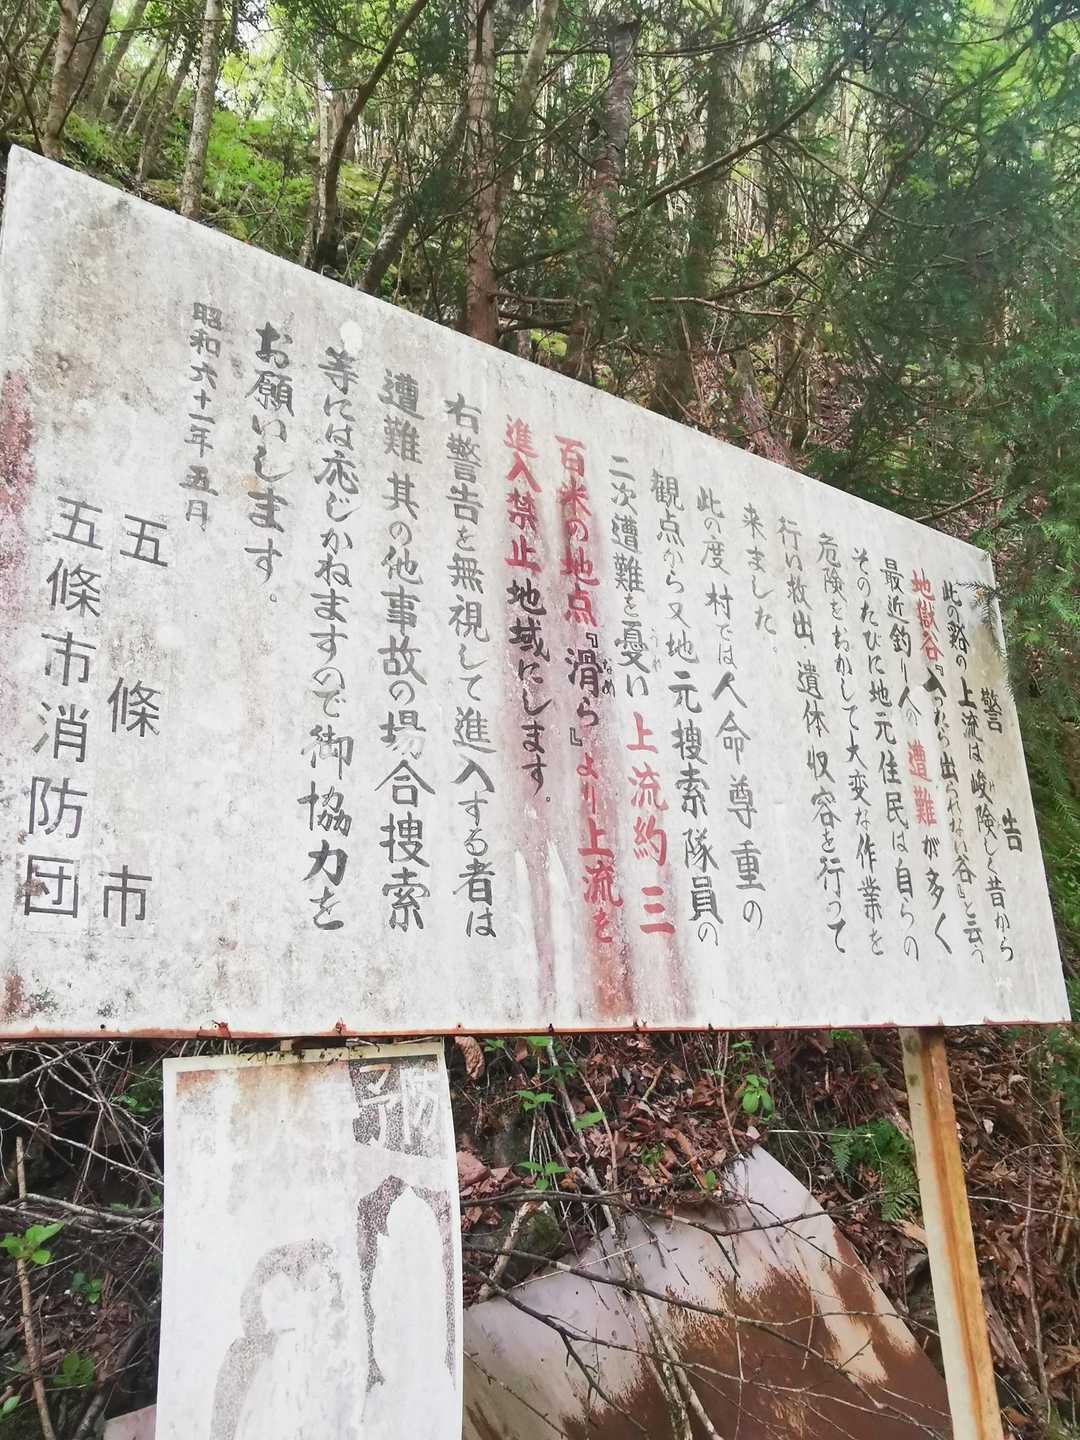 警告
此の谿の上流は峻険しく昔から
地獄谷『入ったら出られない谷』と云う
最近釣り人の遭難が多く
そのたびに地元住民は自らの
危険をおかして大変な作業を
行い救出・遺体収容を行って
来ました。
此の度村では人命尊重の
観点から又地元捜索隊員の
二次遭難を憂い上流約三
百米の地点『滑ら』より上流を
進入禁止地域にします。
右警告を無視して進入する者は
遭難其の他事故の場合捜索
等には応じかねますので御協力を
お願いします。
昭和六十一年五月
五條市
五條市消防団